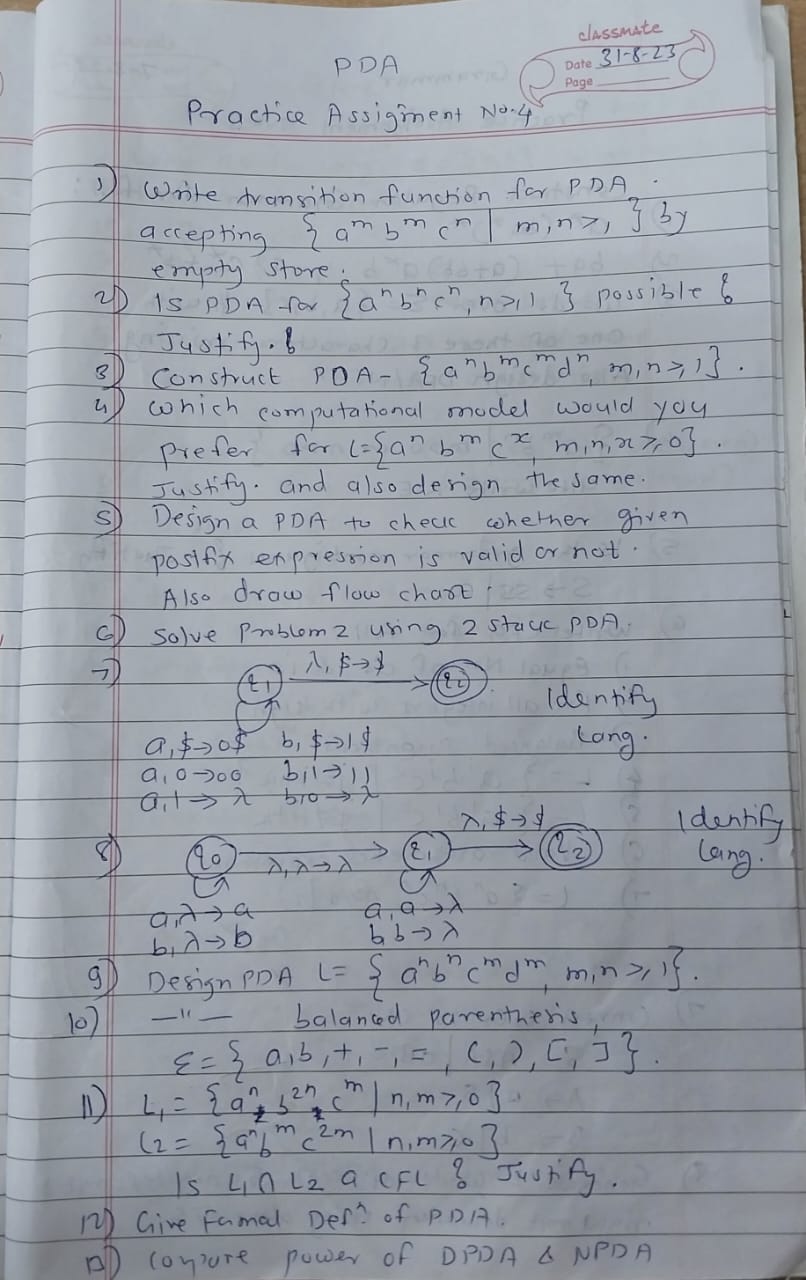 classmate
Date 31-8-23
Page
PDA
Practice Assigment No.4
1) Write transition function for PDA.
accepting { aᵐ bᵐ cⁿ | m,n ≥ 1 } by
empty store.
2) Is PDA for {aⁿ bⁿ cⁿ, n ≥ 1 } possible ?
Justify. ?
3) Construct PDA - {aⁿ bᵐ cᵐ dⁿ, m,n ≥ 1}.
4) which computational model would you
prefer for L={aⁿ bᵐ cˣ, m,n,x ≥ 0}.
Justify. and also design the same.
5) Design a PDA to check whether given
postfix expression is valid or not.
Also draw flow chart.
6) Solve Problem 2 using 2 stack PDA.
7)
λ, $→$
q₁ q₂
Identify
Lang.
a,$→0$ b,$→1$
a,0→00 b,1→11
a,1→λ b,0→λ
8)
λ, $→$
q₀ q₁ q₂
Identify
Lang.
λ,λ→λ
a,λ→a a,a→λ
b,λ→b b b→λ
9) Design PDA L= { aⁿ bⁿ cᵐ dᵐ, m,n ≥ 1}.
10) —"— balanced parenthesis,
Σ={ a,b,+,-,=,(,),[,] }.
11) L₁ = {aⁿ b²ⁿ cᵐ | n,m ≥ 0}
L2 = {aⁿ bᵐ c²ᵐ | n,m ≥ 0}
Is L₁ ∩ L2 a CFL ? Justify.
12) Give Formal Defⁿ. of PDA.
13) Compare power of DPDA & NPDA